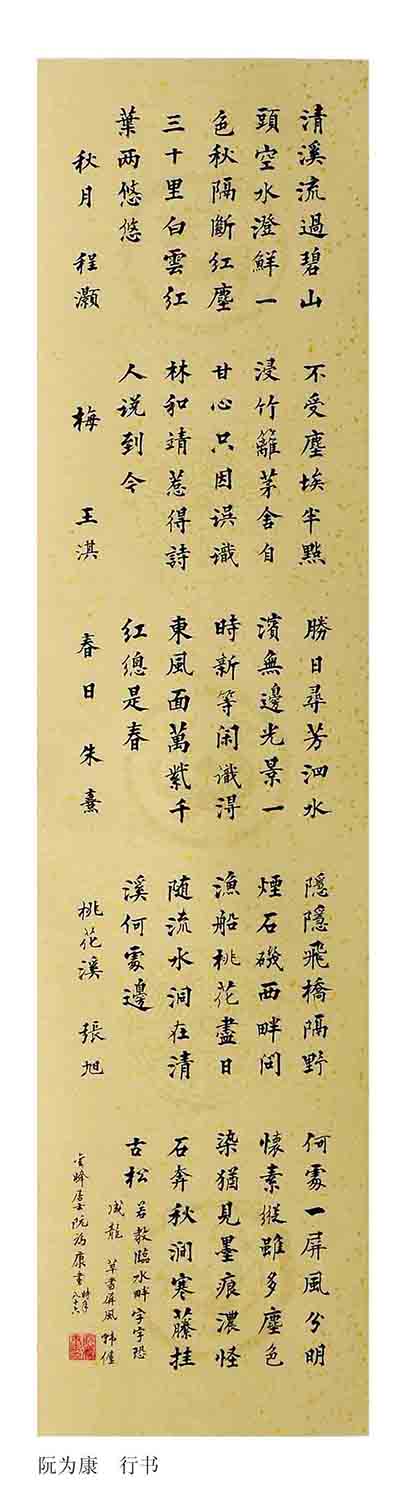 清溪流過碧山
頭空水澄鮮一
色秋隔斷紅塵
三十里白雲紅
葉两悠悠
秋月 程灝
不受塵埃半點
浸竹籬茅舍自
甘心只因误識
林和靖惹得詩
人说到今
梅 王淇
勝日尋芳泗水
濱無邊光景一
時新等闲識得
東風面萬紫千
紅總是春
春日 朱熹
隱隱飛橋隔野
煙石磯西畔问
漁船桃花盡日
随流水洞在清
溪何處邊
桃花溪 張旭
何處一屏風分明
懷素縱雖多塵色
染猶見墨痕濃怪
石奔秋澗寒藤挂
古松 若教臨水畔字字恐
成龍 草書屏風 韩偓
峰居士阮為康書 時年八十六
阮为康 行书